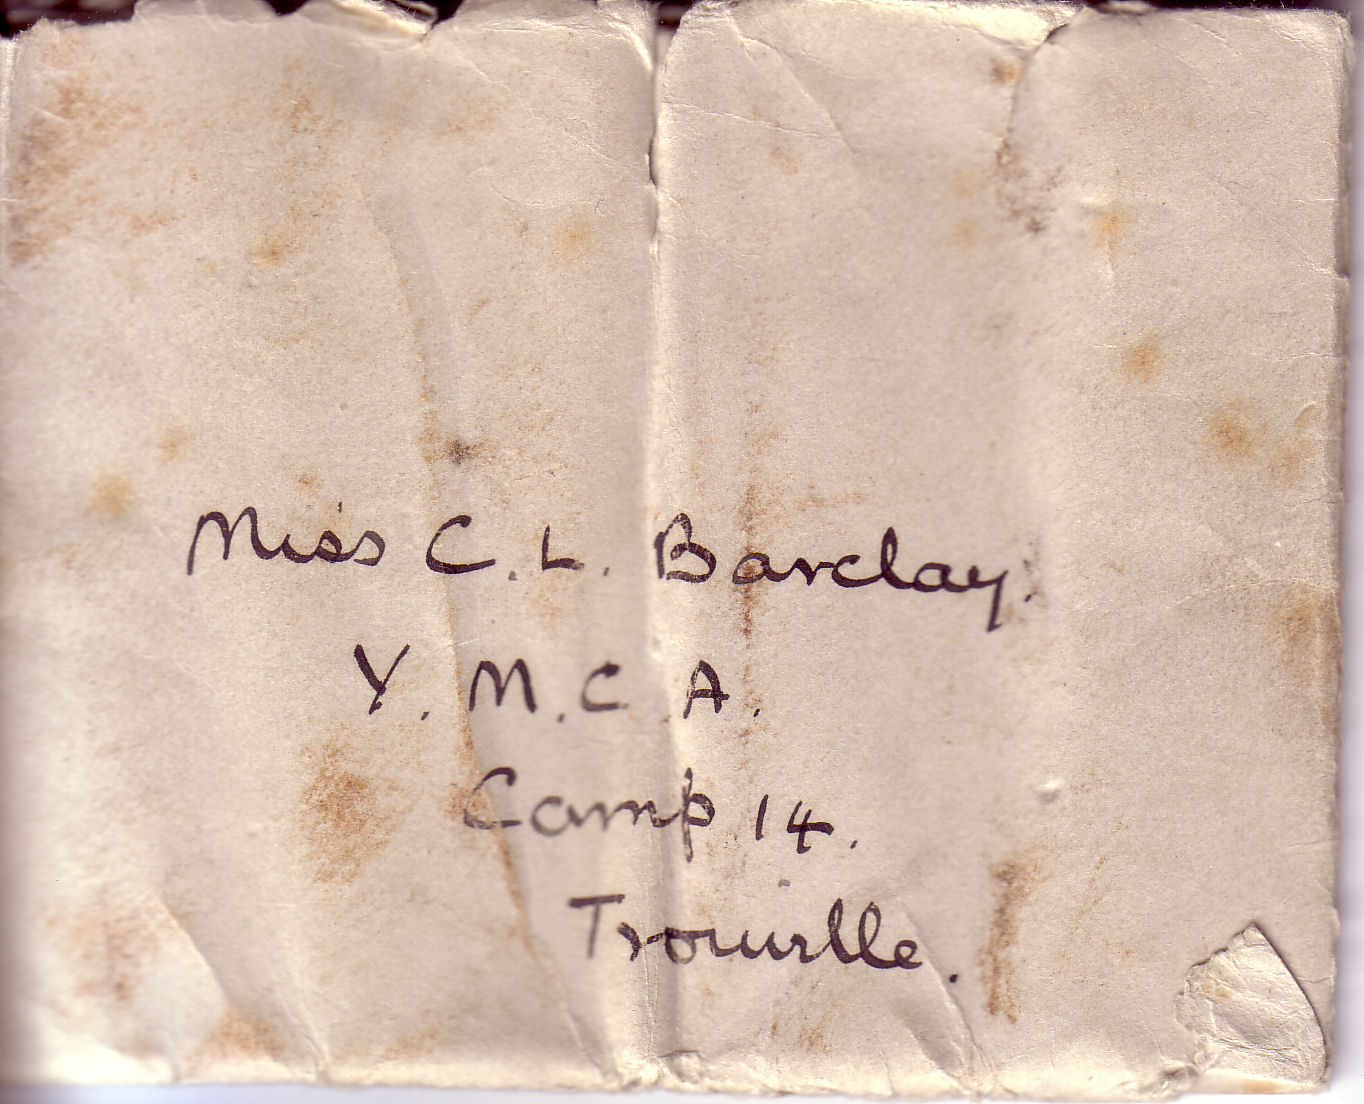 Miss C. L. Barclay.
Y. M. C. A.
Camp 14.
Trouville.